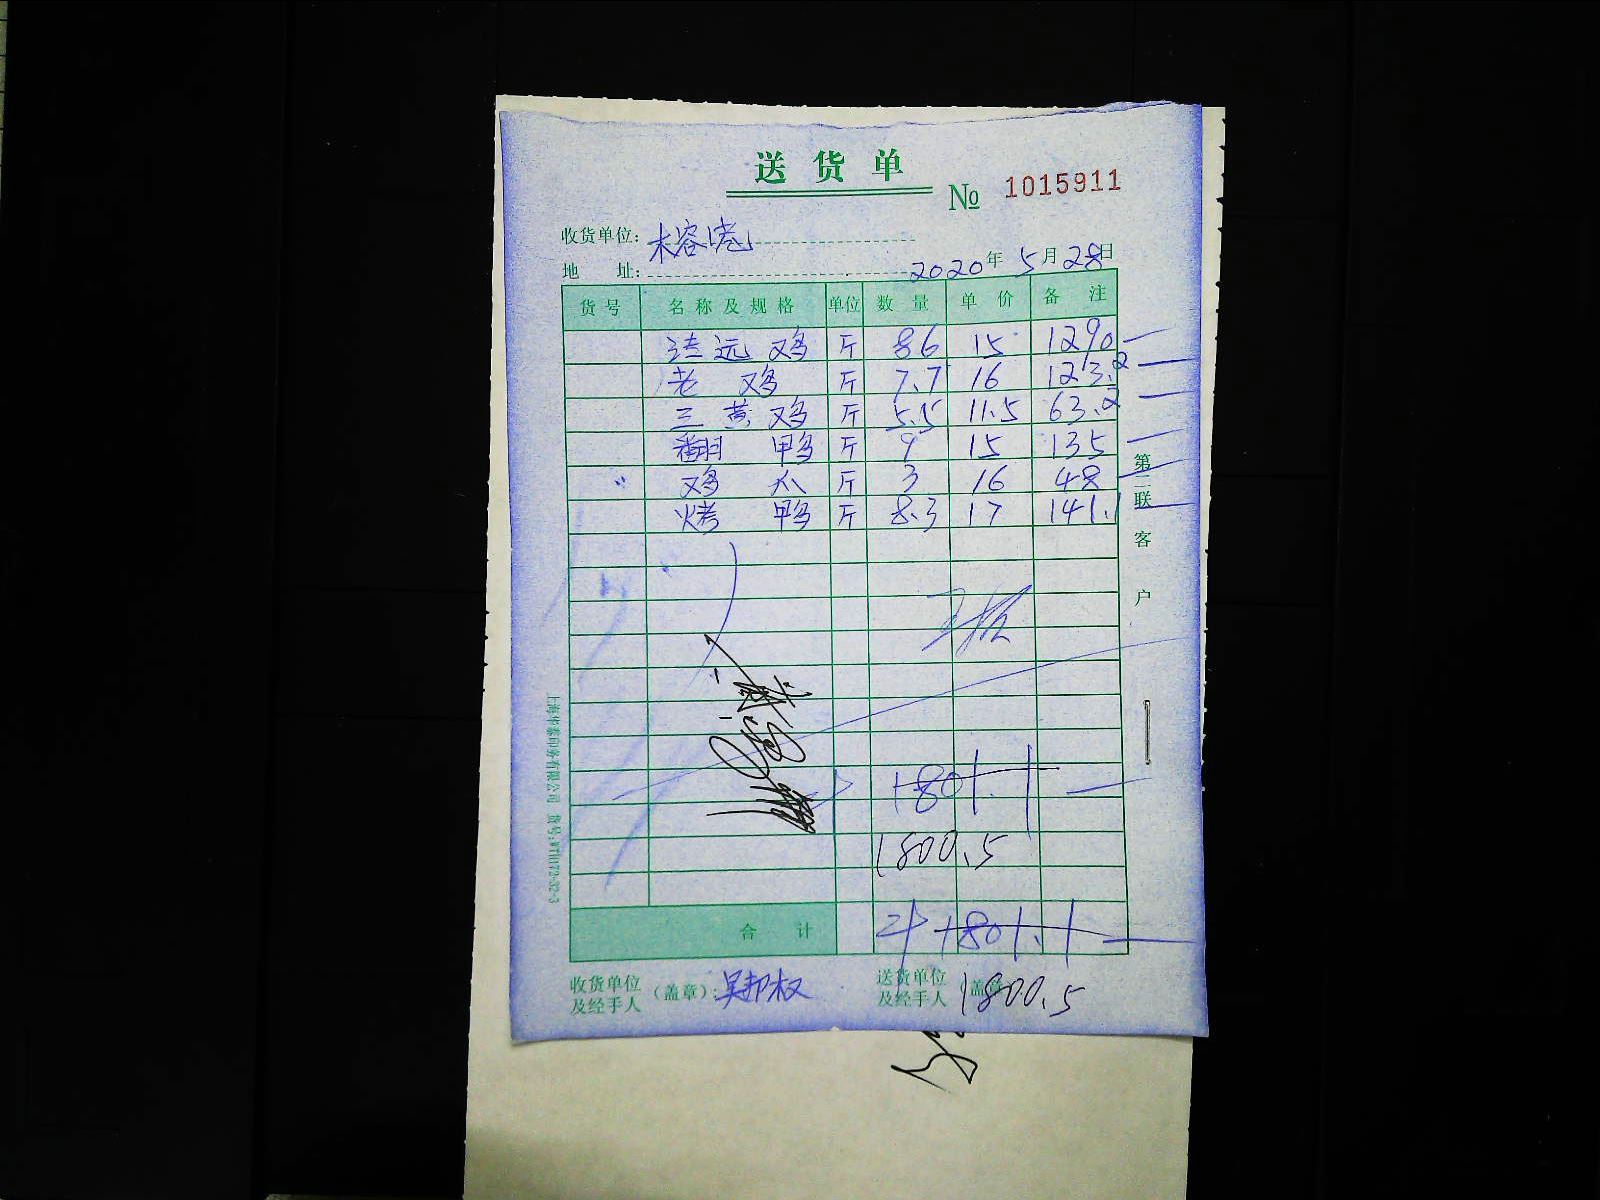 送货单
№ 1015911
收货单位：木容
地 址： 2020年5月28日
货号 名称及规格 单位 数量 单价 备注
清远鸡 斤 86 15 1290
老鸡 斤 7.7 16 123.2
三黄鸡 斤 5.5 11.5 63.2
翻鸭 斤 9 15 135
鸡 斤 3 16 48
烤鸭 斤 8.3 17 141.1
第二联 客户
1801.1
1800.5
合计 1801.1
收货单位及经手人（盖章）：吴邦权 送货单位及经手人（盖章 1800.5
上海华泰印务有限公司 货号:WTH172-32-3